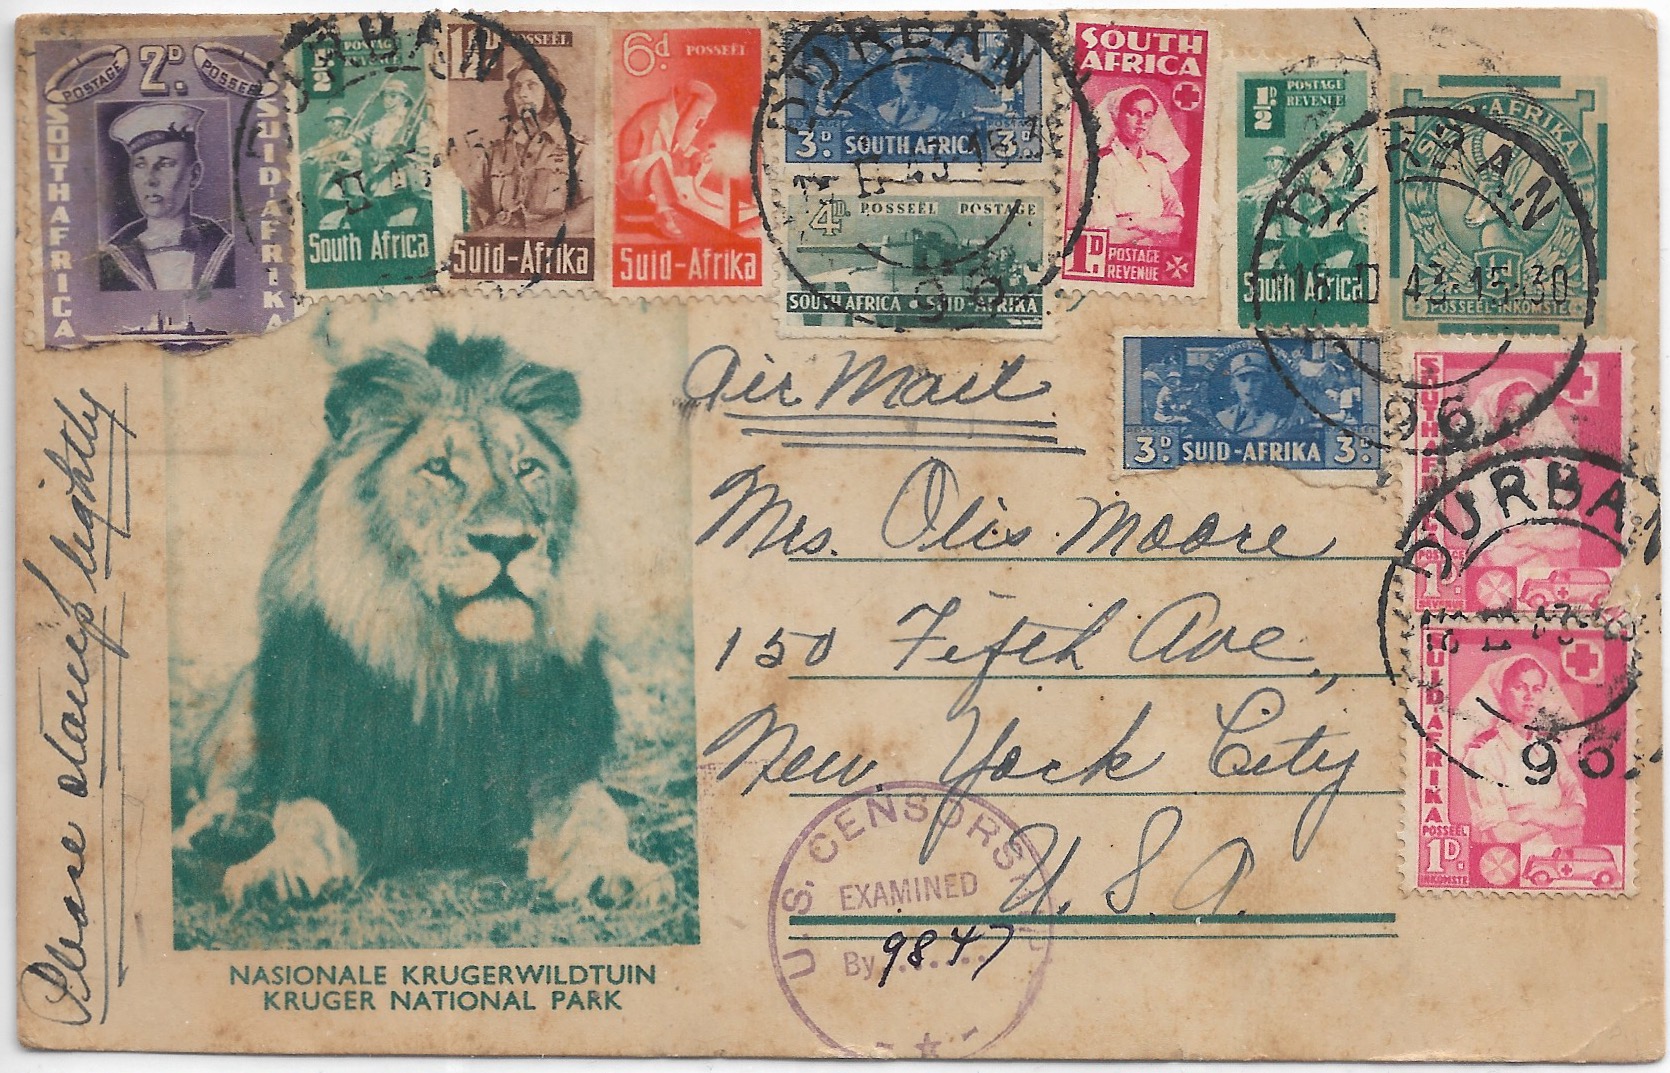 POSTAGE 2D. POSSEËL
SOUTH AFRICA
SUID-AFRIKA
½D POSTAGE
REVENUE
South Africa
1½D POSSEËL
Suid-Afrika
6d POSSEËL
Suid-Afrika
3D. SOUTH AFRICA 3D.
4D POSSEËL POSTAGE
SOUTH AFRICA • SUID-AFRIKA
SOUTH
AFRICA
1D. POSTAGE
REVENUE
½D POSTAGE
REVENUE
South Africa
POSSEËL-INKOMSTE
DURBAN
DURBAN
DURBAN
18 II 43·15·30
96
DURBAN
96
3D SUID-AFRIKA 3D.
1D.
SUID-AFRIKA
POSSEËL
1D.
INKOMSTE
Air Mail
Mrs. Otis Moore
150 Fifth Ave.,
New York City
U.S.A.
Please stamp lightly
NASIONALE KRUGERWILDTUIN
KRUGER NATIONAL PARK
U.S. CENSORSHIP
EXAMINED
By 9847